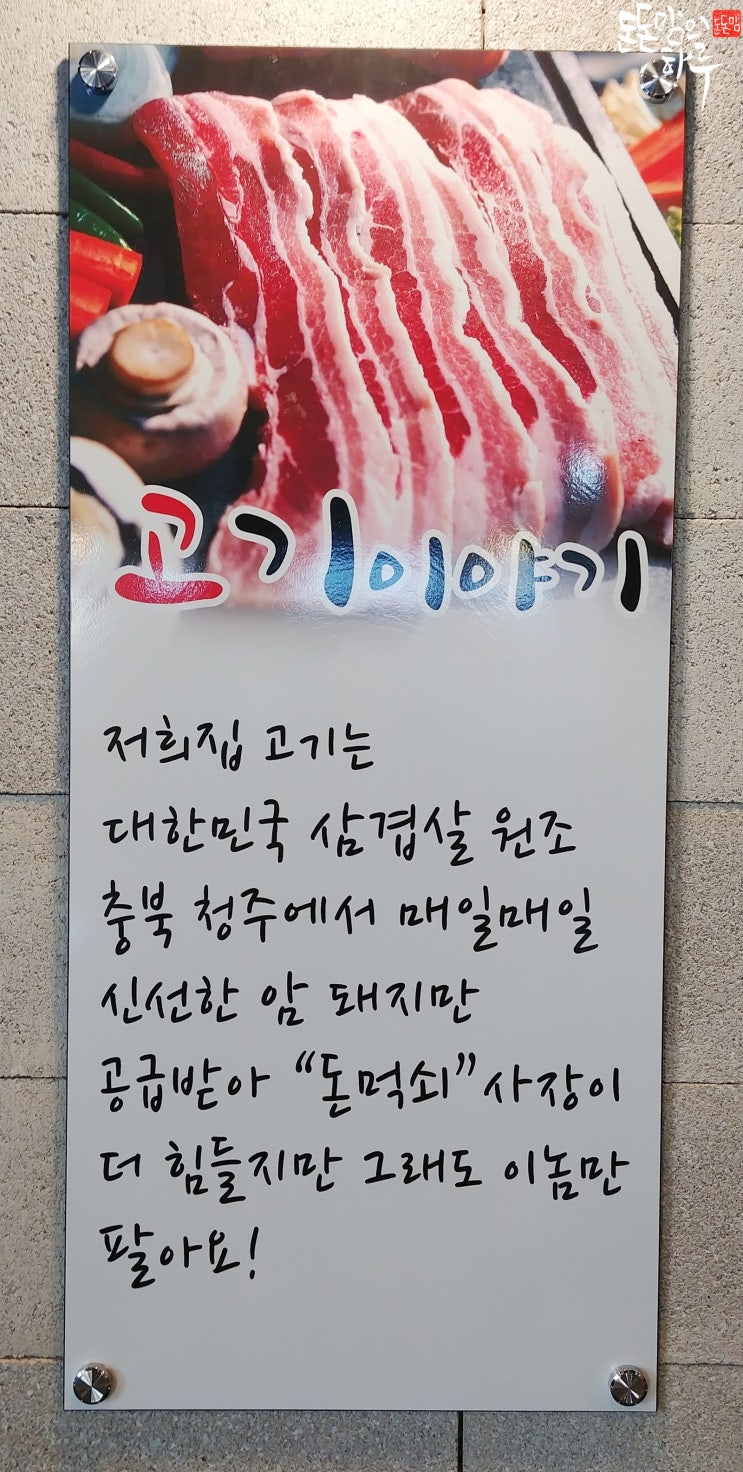 돈돈맘의
하루
돈돈맘
고기이야기
저희집 고기는
대한민국 삼겹살 원조
충북 청주에서 매일매일
신선한 암 돼지만
공급받아 “돈먹쇠” 사장이
더 힘들지만 그래도 이놈만
팔아요!